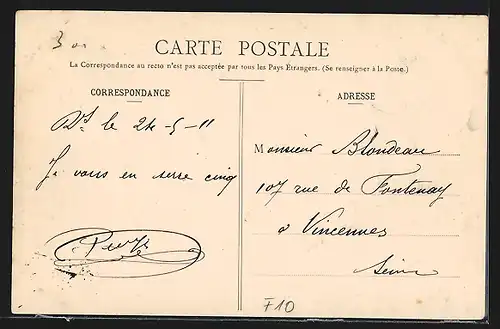 3
CARTE POSTALE
La Correspondance au recto n'est pas acceptée par tous les Pays Étrangers. (Se renseigner à la Poste.)
CORRESPONDANCE
le 24-5-11
Je vous en serre cinq
ADRESSE
Monsieur Blondeau
107 rue de Fontenay
à Vincennes
Seine
F10